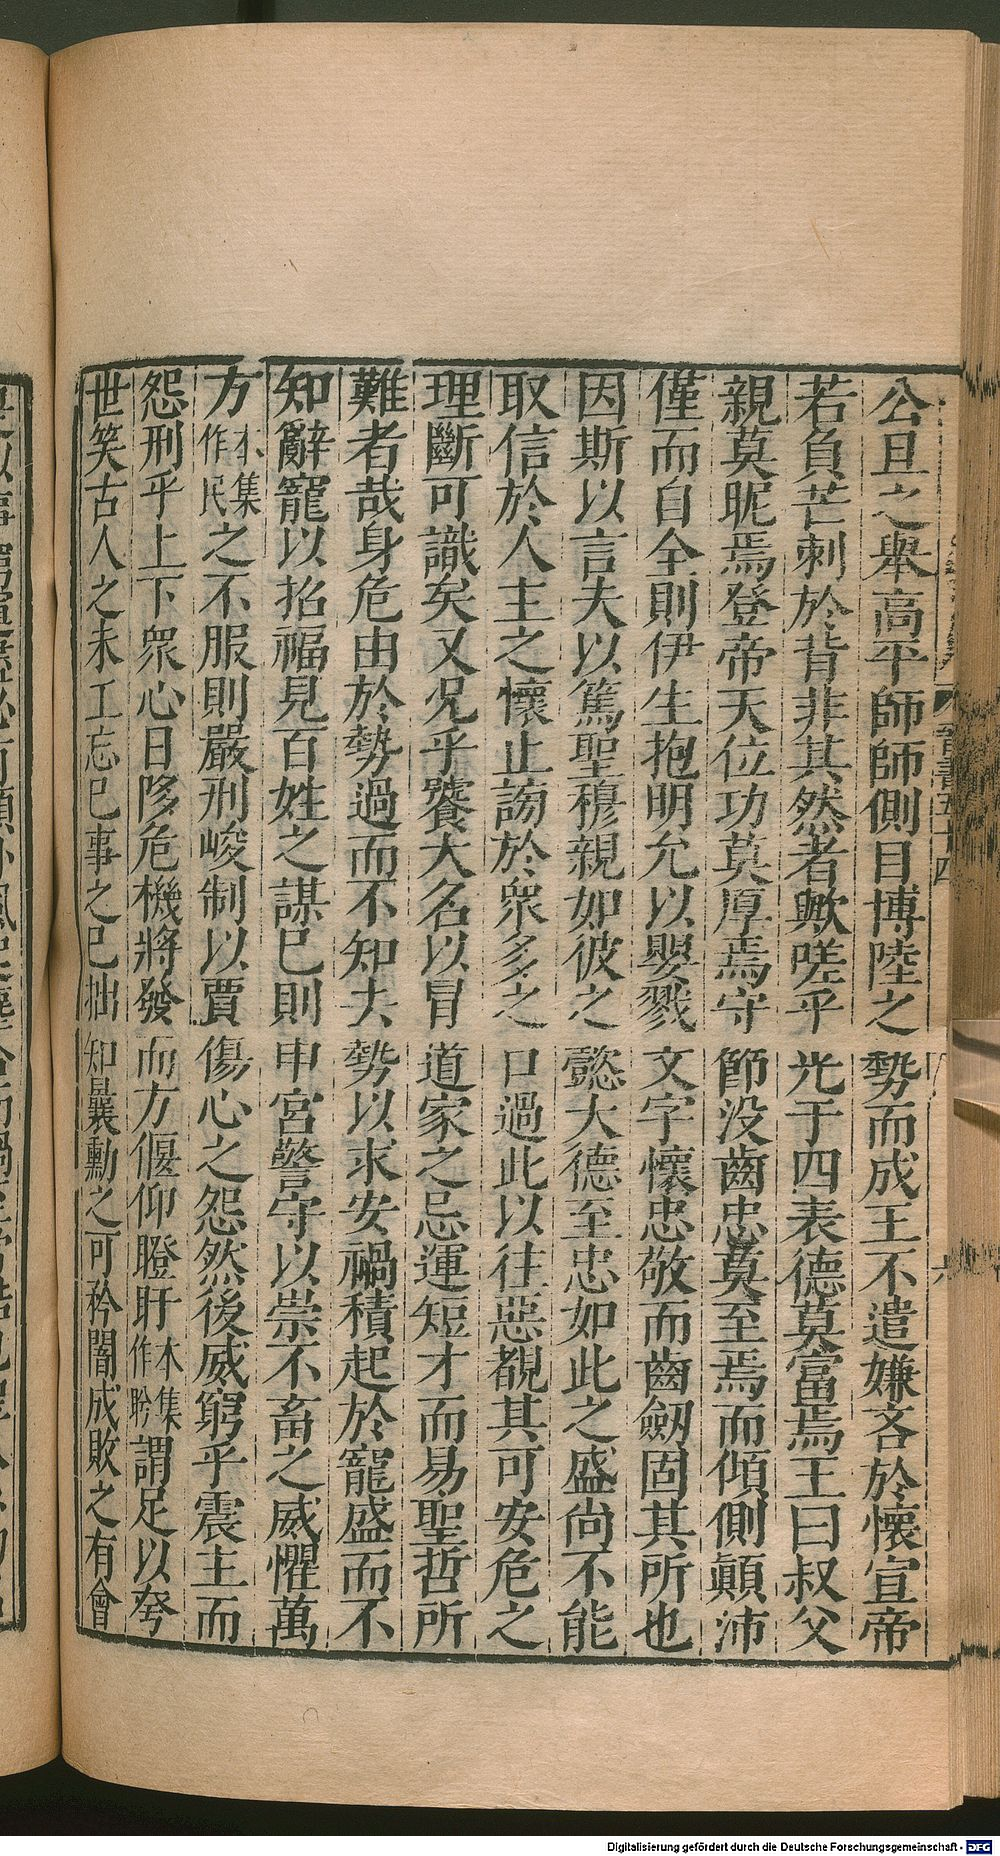 公旦之舉高平師師側目博陸之勢而成王不遣嫌吝於懷宣帝
若負芒刺於背非其然者歟嗟乎光于四表德莫富焉王曰叔父
親莫昵焉登帝天位功莫厚焉守節没齒忠莫至焉而傾側顛沛
僅而自全則伊生抱明允以嬰戮文字懷忠敬而齒劒固其所也
因斯以言夫以篤聖穆親如彼之懿大德至忠如此之盛尚不能
取信於人主之懷止謗於衆多之口過此以往惡覩其可安危之
理斷可識矣又况乎饕大名以冒道家之忌運短才而易聖哲所
難者哉身危由於勢過而不知去勢以求安禍積起於寵盛而不
知辭寵以招福見百姓之謀已則申宮警守以崇不畜之威懼萬
方本集作民之不服則嚴刑峻制以賈傷心之怨然後威窮乎震主而
怨刑乎上下衆心日陊危機將發而方偃仰瞪盱本集作盻謂足以夸
世笑古人之未工忘已事之已拙知曩勳之可矜闇成敗之有會
晉書五十四
六
Digitalisierung gefördert durch die Deutsche Forschungsgemeinschaft - DFG